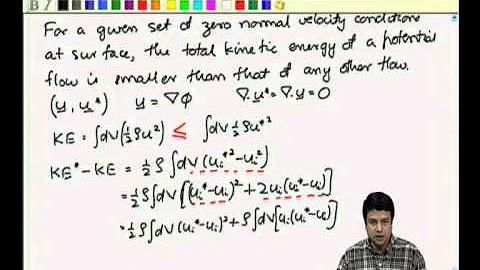 For a given set of zero normal velocity conditions
at surface, the total kinetic energy of a potential
flow is smaller than that of any other flow.
(u, u*) u = ∇φ ∇·u* = ∇·u = 0
KE = ∫dV(½ρu²) ≤ ∫dV ½ρu*²
KE* - KE = ½ρ∫dV (uᵢ*² - uᵢ²)
= ½ρ∫dV[(uᵢ* - uᵢ)² + 2uᵢ(uᵢ* - uᵢ)]
= ½ρ∫dV (uᵢ* - uᵢ)² + ρ∫dV[uᵢ(uᵢ* - uᵢ)]